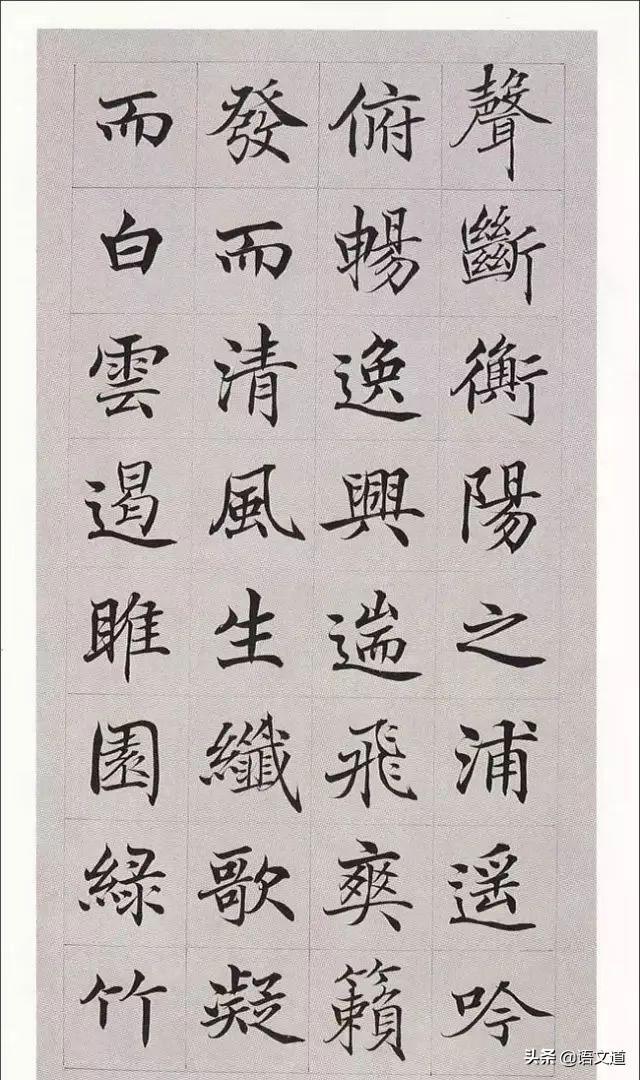 聲斷衡陽之浦遥吟
俯暢逸興遄飛爽籟
發而清風生纖歌凝
而白雲遏睢園緑竹
头条 @语文道